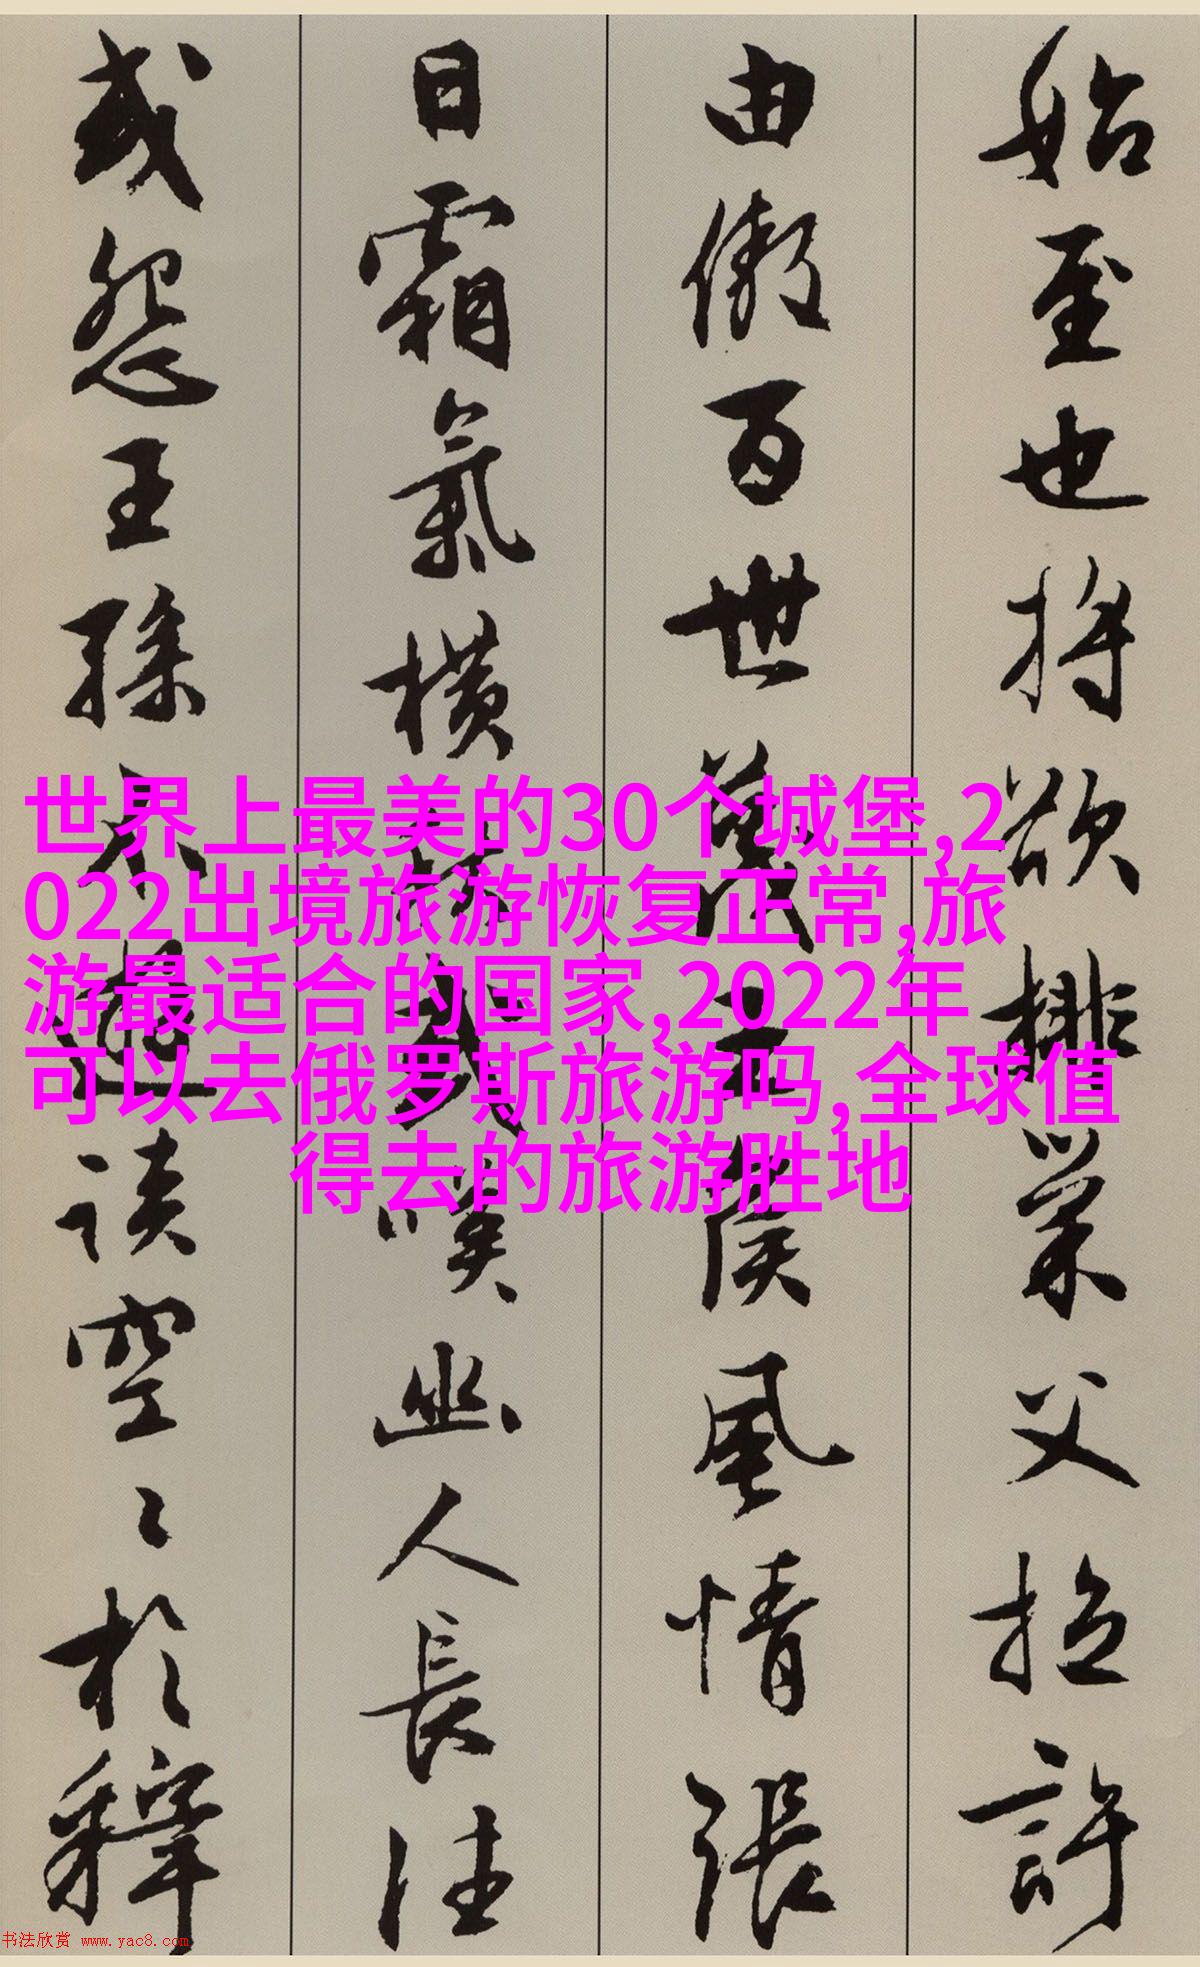 始至也將欲排巢父拉許
由傲百世蔑王侯風情張
日霜氣橫秋或嘆幽人長往
或怨王孫不遊談空〻於釋
世界上最美的30个城堡,2
022出境旅游恢复正常,旅
游最适合的国家,2022年
可以去俄罗斯旅游吗,全球值
得去的旅游胜地
书法欣赏 www.yac8.com